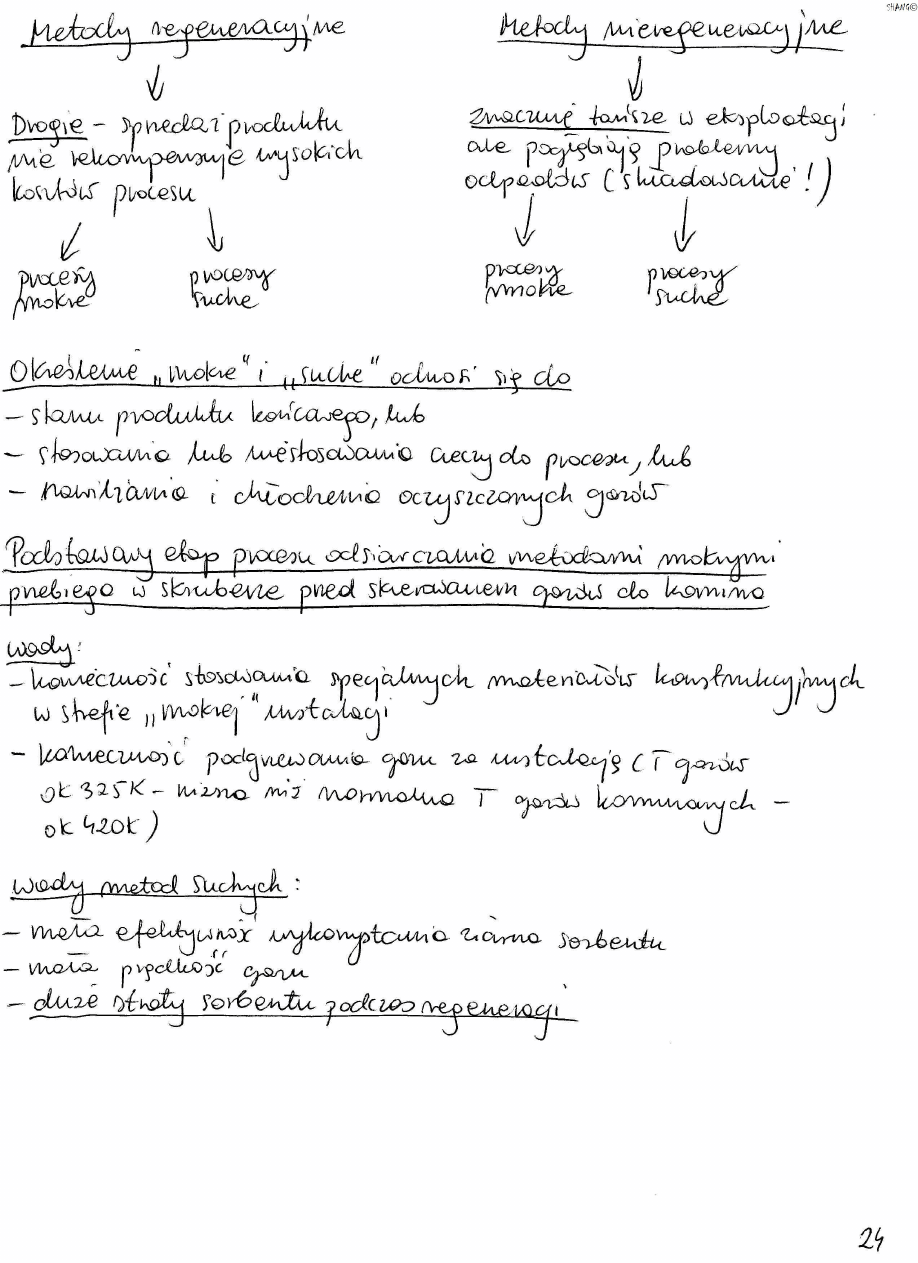 SHANG©
Metody regeneracyjne
Drogie – sprzedaż produktu
nie rekompensuje wysokich
kosztów procesu
procesy
mokre
procesy
suche
Metody nieregeneracyjne
Znacznie tańsze w eksploatacji
ale pogłębiają problemy
odpadów (składowanie!)
procesy
mokre
procesy
suche
Określenie „mokre" i „suche" odnosi się do
– stanu produktu końcowego, lub
– stosowania lub niestosowania cieczy do procesu, lub
– nawilżania i chłodzenia oczyszczonych gazów
Podstawowy etap procesu odsiarczania metodami mokrymi
przebiega w skruberze przed skierowaniem gazów do komina
wady:
– konieczność stosowania specjalnych materiałów konstrukcyjnych
w strefie „mokrej" instalacji
– konieczność podgrzewania gazu za instalację (T gazów
ok 325K – niższa niż normalna T gazów kominowych –
ok 420K)
wady metod suchych:
– mała efektywność wykorzystania ziarna sorbentu
– mała prędkość gazu
– duże straty sorbentu podczas regeneracji
24